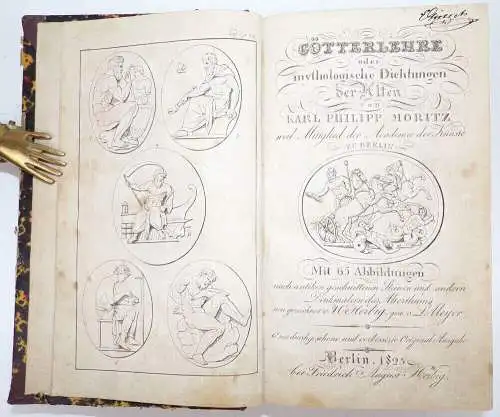 GÖTTERLEHRE
oder
mythologische Dichtungen
der Alten
von
KARL PHILIPP MORITZ
weil. Mitglied der Academie der Künste
ZU BERLIN
Mit 65 Abbildungen
nach antiken geschnittenen Steinen und andern
Denkmälern des Alterthums
neu gezeichnet v. gest. v. L. Meyer.
durchgesehene und verbesserte Original-Ausgabe
Berlin, 1825
bei Friedrich August Herbig.